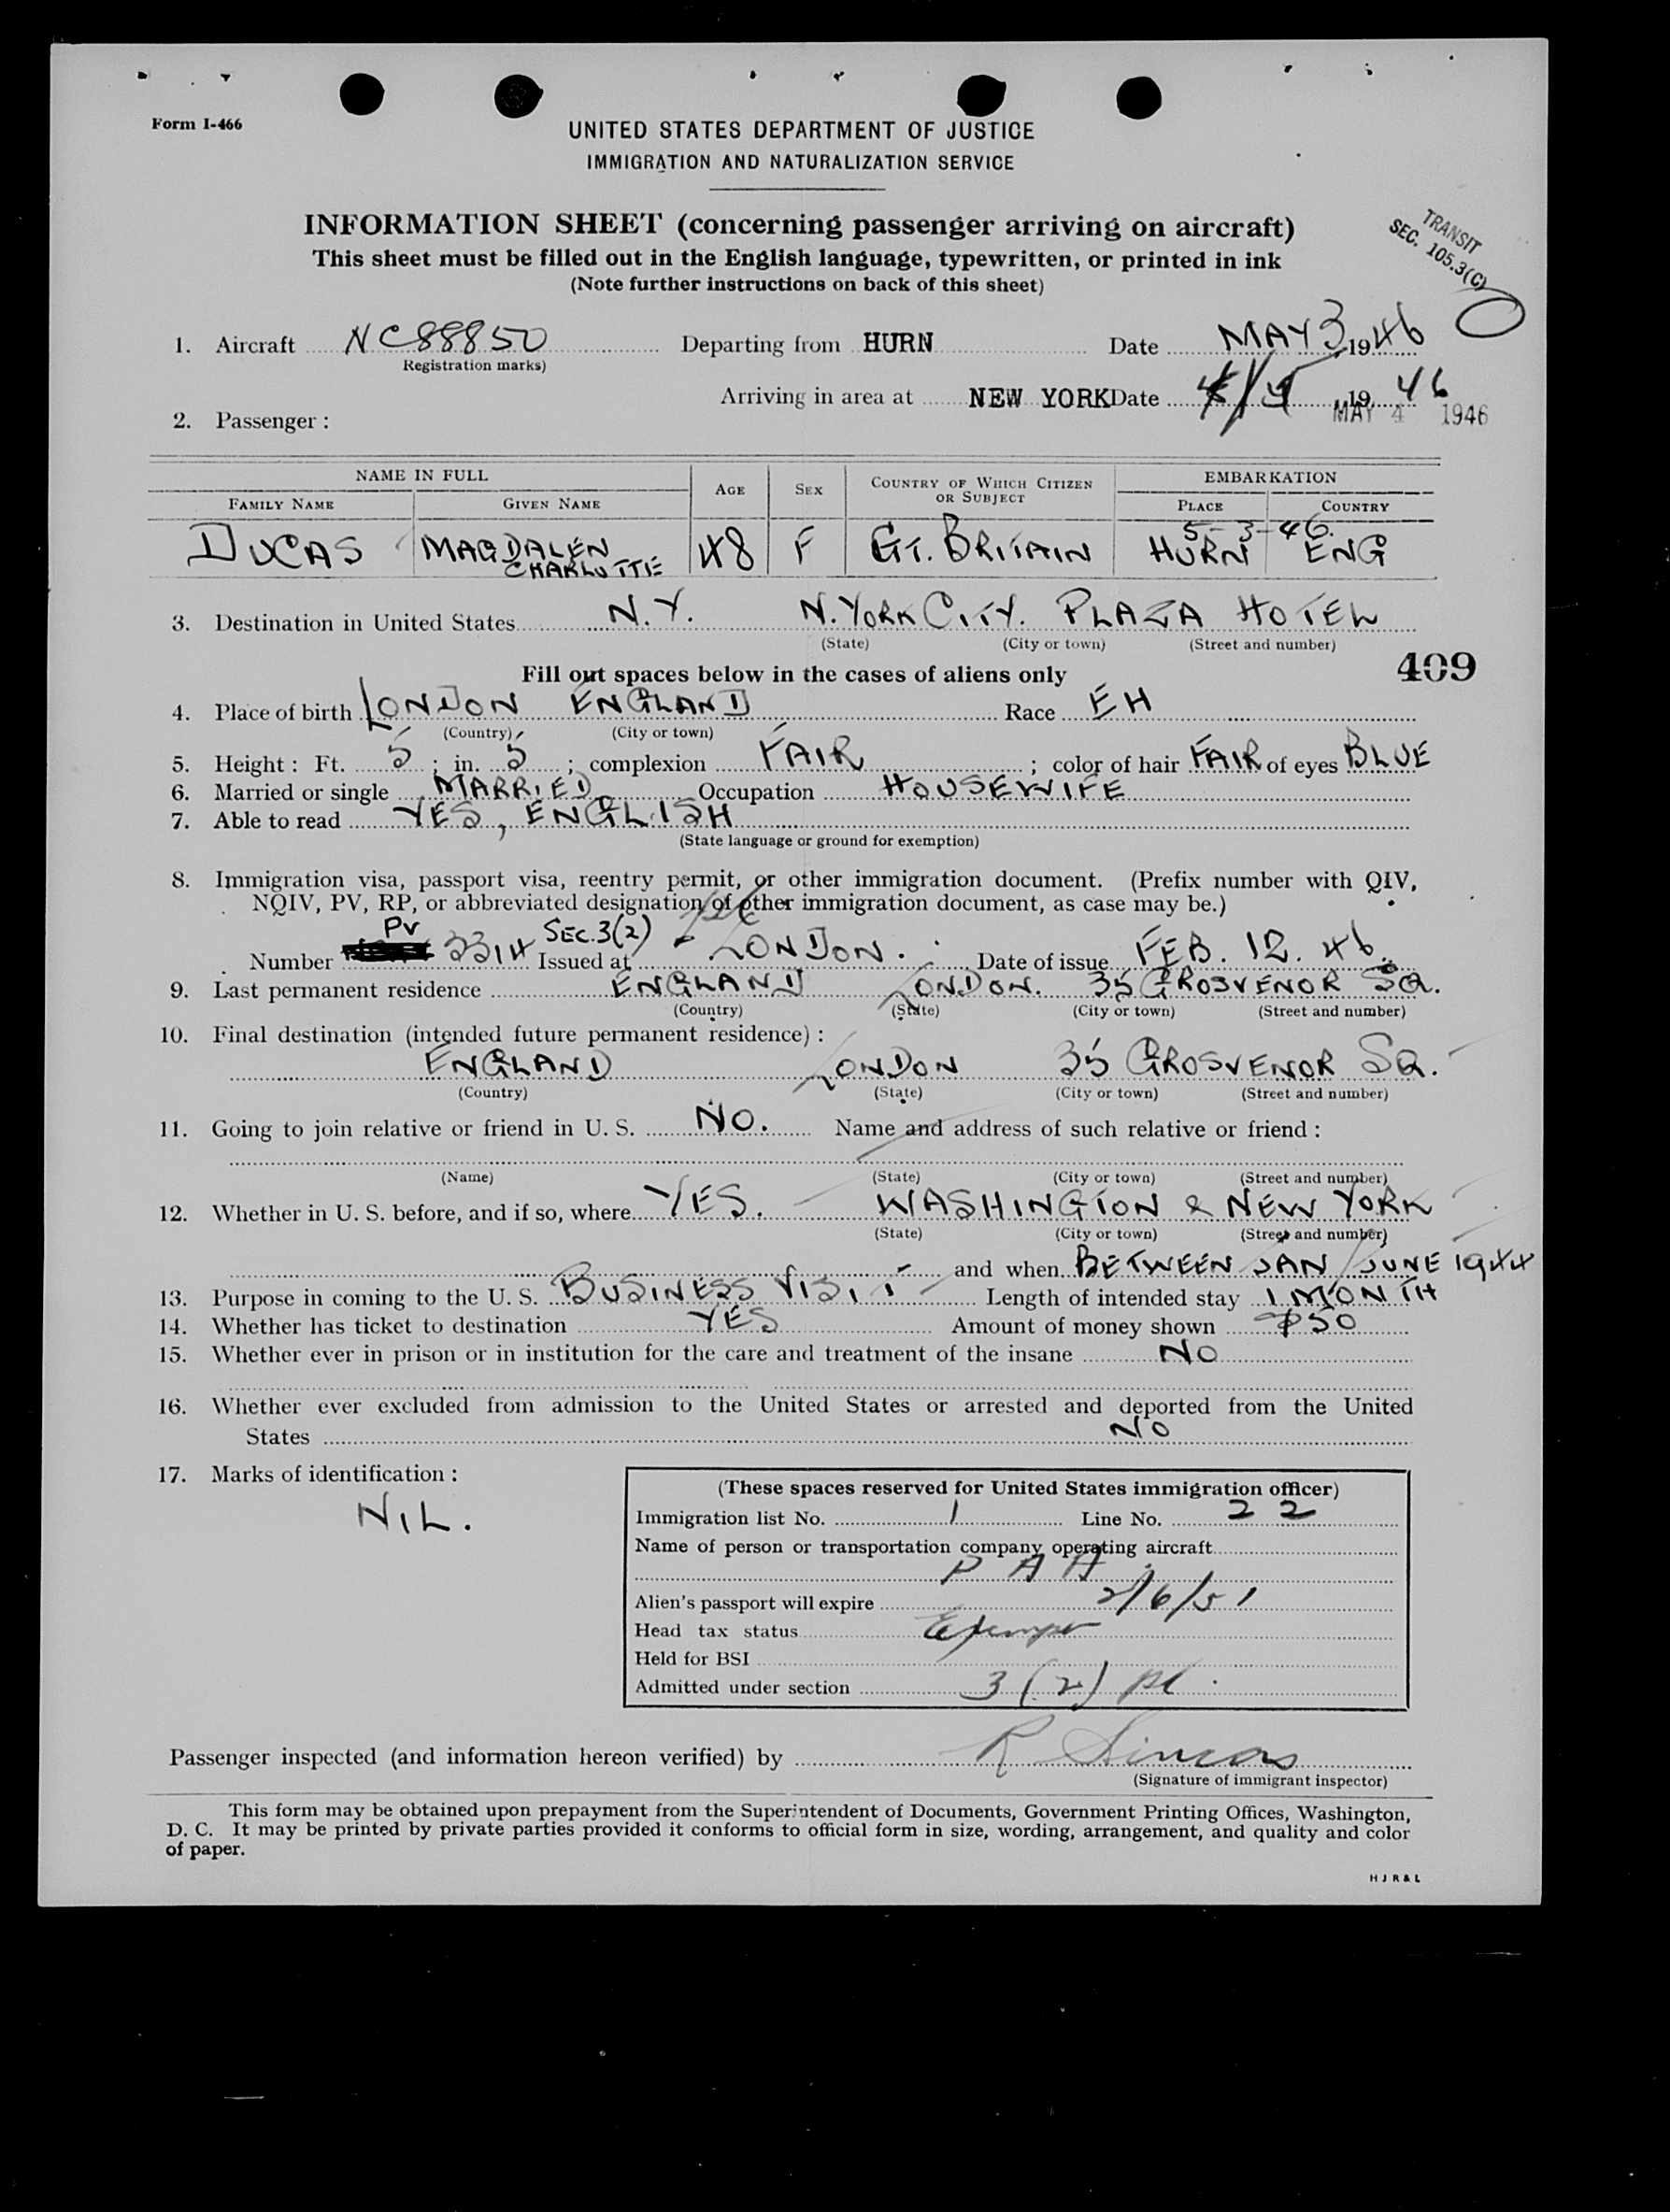 Form I-466
UNITED STATES DEPARTMENT OF JUSTICE
IMMIGRATION AND NATURALIZATION SERVICE
INFORMATION SHEET (concerning passenger arriving on aircraft)
This sheet must be filled out in the English language, typewritten, or printed in ink
(Note further instructions on back of this sheet)
TRANSIT
SEC. 105.3(C)
1. Aircraft NC88850 Departing from HURN Date MAY 3, 1946
Registration marks)
Arriving in area at NEW YORK Date , 19 46
MAY 4 1946
2. Passenger :
NAME IN FULL AGE SEX COUNTRY OF WHICH CITIZEN OR SUBJECT EMBARKATION
FAMILY NAME GIVEN NAME PLACE COUNTRY
5-3-46.
DUCAS MAGDALEN CHARLOTTE 48 F GT. BRITAIN HURN ENG
3. Destination in United States N.Y. N. YORK CITY. PLAZA HOTEL
(State) (City or town) (Street and number)
409
Fill out spaces below in the cases of aliens only
4. Place of birth LONDON ENGLAND Race EH
(Country) (City or town)
5. Height : Ft. 5 ; in. 5 ; complexion FAIR ; color of hair FAIR of eyes BLUE
6. Married or single MARRIED Occupation HOUSEWIFE
7. Able to read YES, ENGLISH
(State language or ground for exemption)
8. Immigration visa, passport visa, reentry permit, or other immigration document. (Prefix number with QIV,
NQIV, PV, RP, or abbreviated designation of other immigration document, as case may be.)
PV SEC. 3(2)
Number 3314 Issued at LONDON. Date of issue FEB. 12. 46.
9. Last permanent residence ENGLAND LONDON. 35 GROSVENOR SQ.
(Country) (State) (City or town) (Street and number)
10. Final destination (intended future permanent residence) :
ENGLAND LONDON 35 GROSVENOR SQ.
(Country) (State) (City or town) (Street and number)
11. Going to join relative or friend in U. S. NO. Name and address of such relative or friend :
(Name) (State) (City or town) (Street and number)
12. Whether in U. S. before, and if so, where YES. WASHINGTON & NEW YORK
(State) (City or town) (Street and number)
and when BETWEEN JAN / JUNE 1944
13. Purpose in coming to the U. S. BUSINESS VISIT Length of intended stay 1 MONTH
14. Whether has ticket to destination YES Amount of money shown $50
15. Whether ever in prison or in institution for the care and treatment of the insane NO
16. Whether ever excluded from admission to the United States or arrested and deported from the United
States NO
17. Marks of identification :
NIL.
(These spaces reserved for United States immigration officer)
Immigration list No. 1 Line No. 22
Name of person or transportation company operating aircraft
P A A
Alien's passport will expire 2/6/51
Head tax status Exempt
Held for BSI
Admitted under section 3 (2)
Passenger inspected (and information hereon verified) by R
(Signature of immigrant inspector)
This form may be obtained upon prepayment from the Superintendent of Documents, Government Printing Offices, Washington,
D. C. It may be printed by private parties provided it conforms to official form in size, wording, arrangement, and quality and color
of paper.
H J R & L